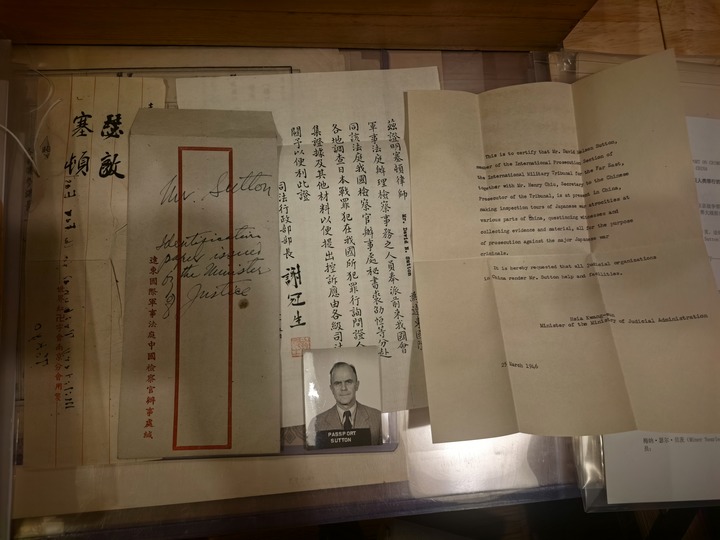 瑟敔
塞頓
Mr. Sutton
Identification
paper issued
by the Minister
of Justice
遠東國際軍事法庭中國檢察官辦事處緘
茲證明塞頓律師
軍事法庭辦理檢察事務之人員奉派前來我國會
同該法庭我國檢察官辦事處秘書裘劭恒等分赴
各地調查日本戰罪犯在我國所犯罪行詢問證人
集證據及其他材料以便提出控訴應由各級司法
關予以便利此證
司法行政部部長 謝冠生
PASSPORT
SUTTON
This is to certify that Mr. David Nelson Sutton,
member of the International Prosecution Section of
the International Military Tribunal for the Far East,
together with Mr. Henry Chiu, Secretary to the Chinese
Prosecutor of the Tribunal, is at present in China,
making inspection tours of Japanese war atrocities at
various parts of China, questioning witnesses and
collecting evidence and material, all for the purpose
of prosecution against the major Japanese war
criminals.
It is hereby requested that all judicial organizations
in China render Mr. Sutton help and facilities.
Hsia
Minister of the Ministry of Judicial Administration
March 1946